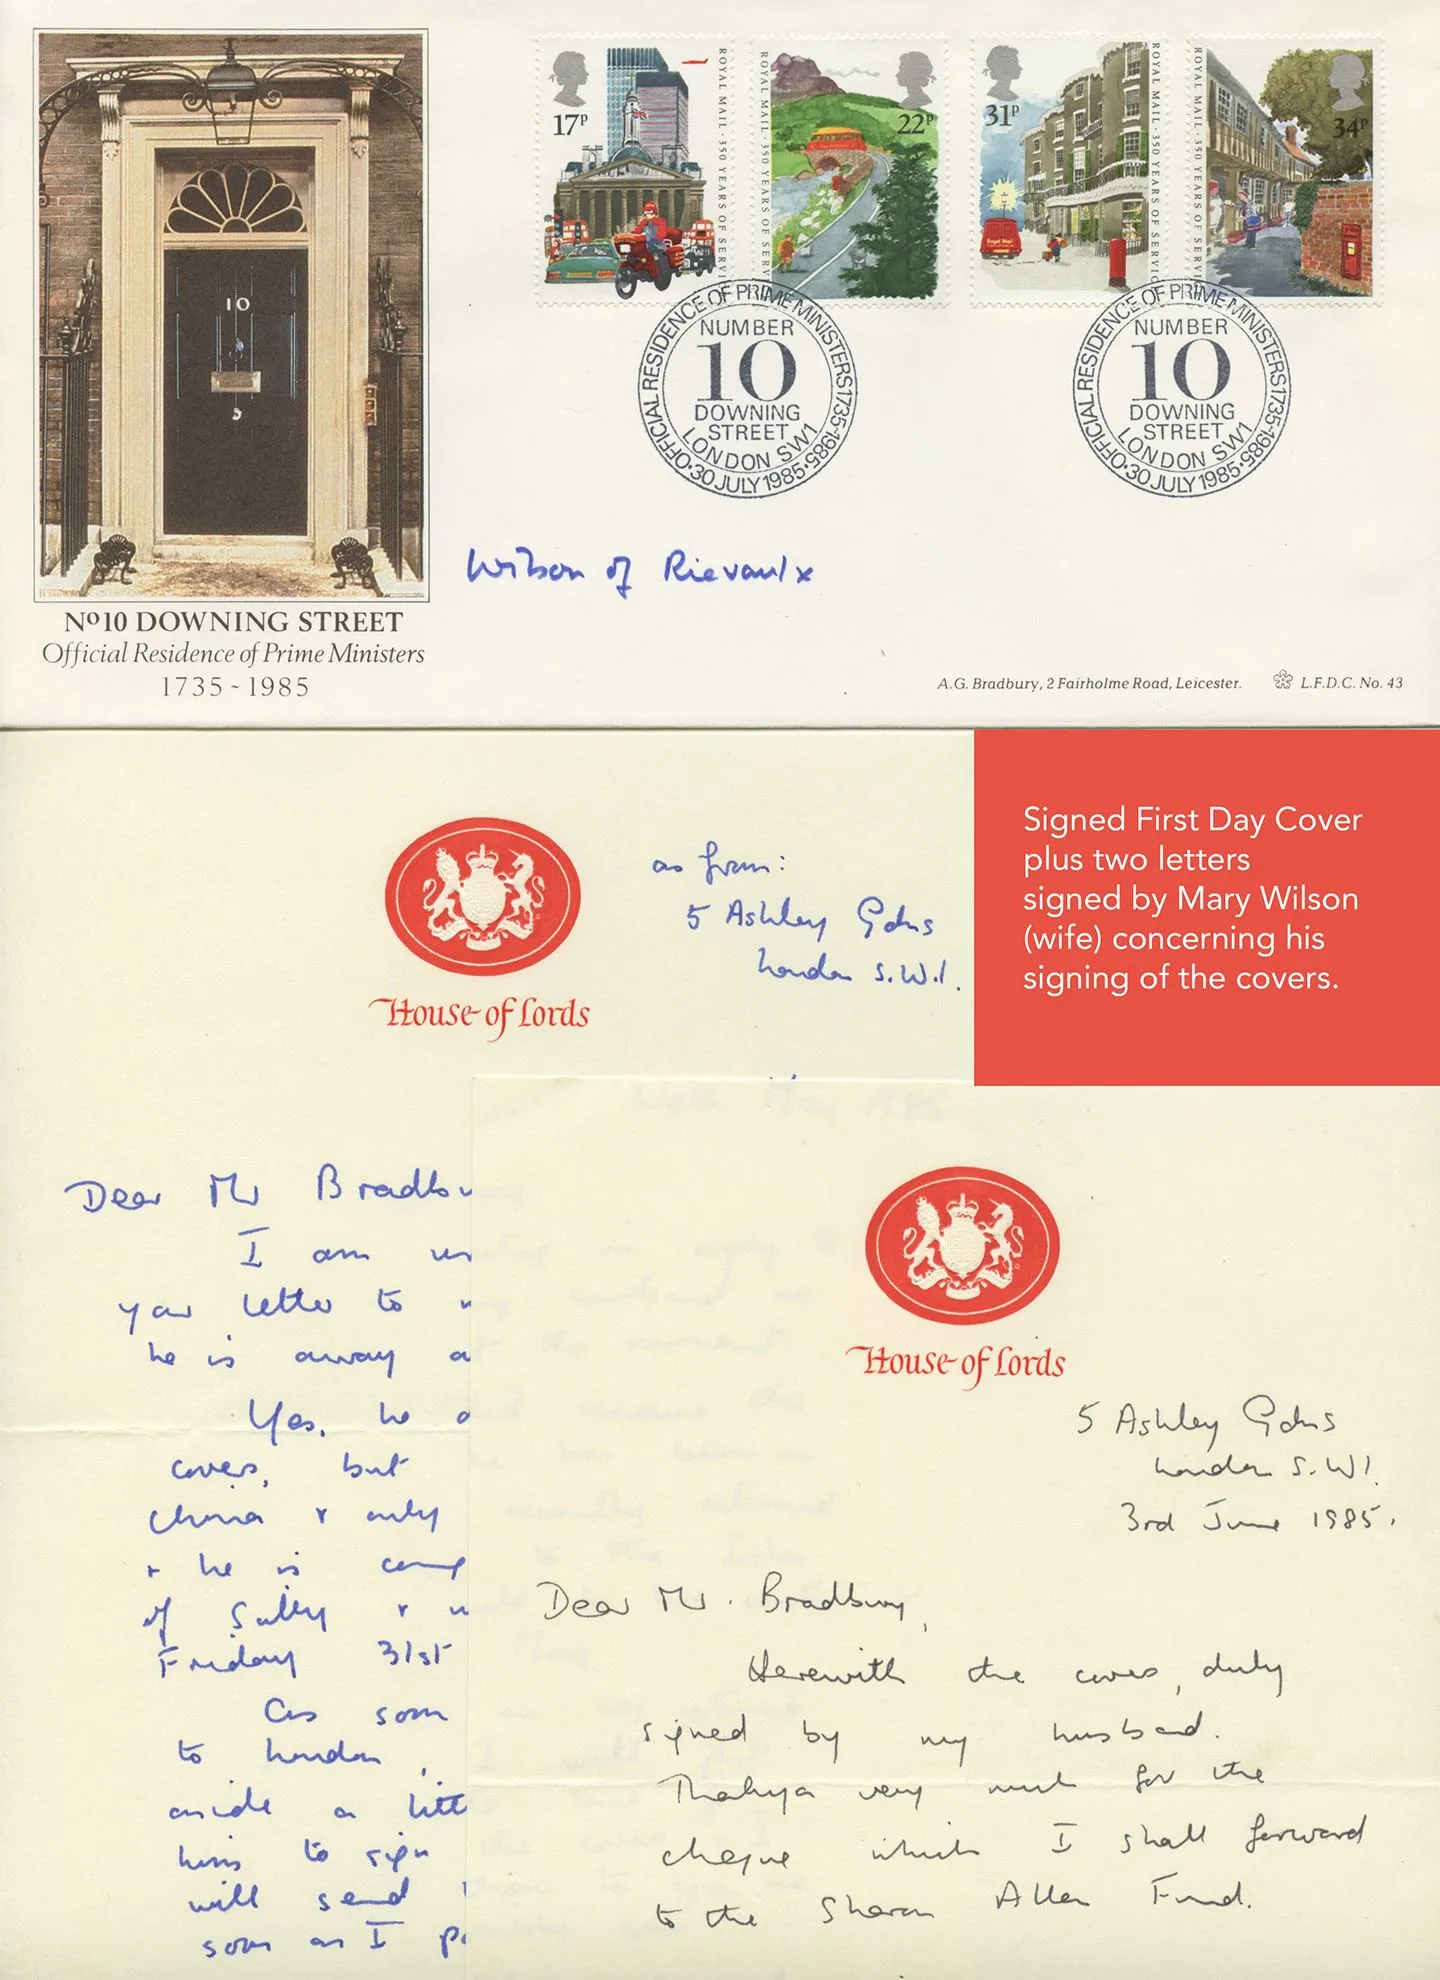 10
No10 DOWNING STREET
Official Residence of Prime Ministers
1735 - 1985
17P
ROYAL MAIL · 350 YEARS OF SERVICE
ROYAL MAIL · 350 YEARS OF SERVI
22P
31P
Royal Mail
ROYAL MAIL · 350 YEARS OF SERVICE
ROYAL MAIL · 350 YEARS OF SERVICE
34P
OFFICIAL RESIDENCE OF PRIME MINISTERS 1735-1985 · 30 JULY 1985 ·
NUMBER
10
DOWNING
STREET
LONDON SW1
OFFICIAL RESIDENCE OF PRIME MINISTERS 1735-1985 · 30 JULY 1985 ·
NUMBER
10
DOWNING
STREET
LONDON SW1
Wilson of Rievaulx
A.G. Bradbury, 2 Fairholme Road, Leicester.
L.F.D.C. No. 43
Signed First Day Cover
plus two letters
signed by Mary Wilson
(wife) concerning his
signing of the covers.
House of Lords
as from:
5 Ashley Gdns
London S.W.1.
Dear Mr Bradbu
I am
your letter to
he is away a
Yes, he
covers, but
China & only
& he is
of Scilly &
Friday 31st
As soon
to London,
aside a litt
him to sign
will send
soon as I
House of Lords
5 Ashley Gdns
London S.W1.
3rd June 1985.
Dear Mr. Bradbury,
Herewith the covers, duly
signed by my husband.
Thankyou very much for the
cheque which I shall forward
to the Sharon Allen Fund.